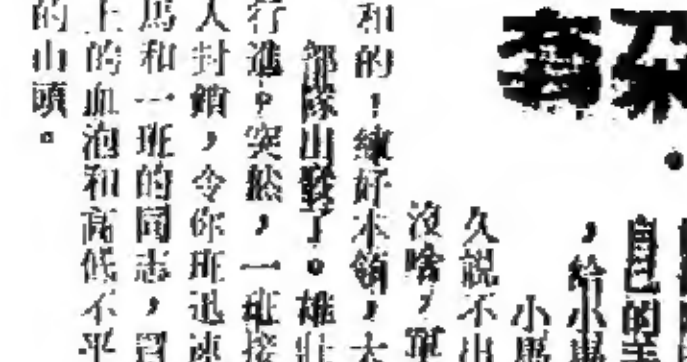 朵
套
自己的手
，給小
小馬
久說不出
沒啥，單
和的！練好本領，大
部隊出發了。雄壯
行進。突然，一班接
人封鎖，令你班迅速
馬和一班的同志，冒
上的血泡和高低不平
的山頭。